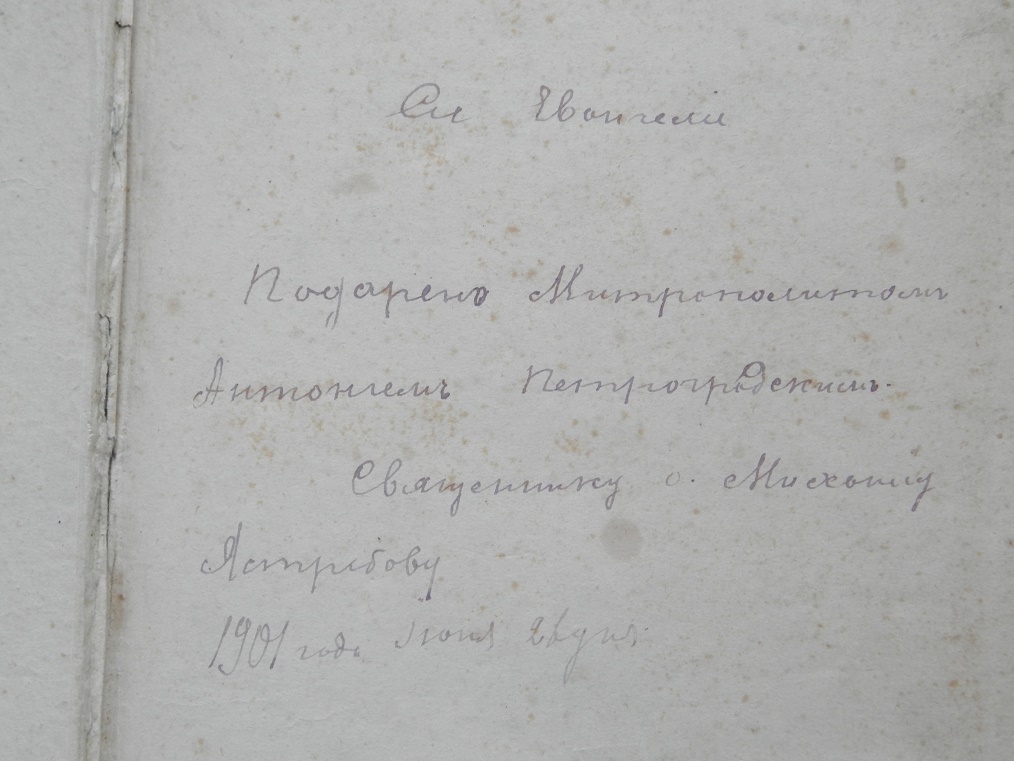 Св Евангели
Подарено Митрополитомъ
Антонiемъ Петроградскимъ.
Священнику о. Михаилу
Ястребову
1901 года Iюня дня